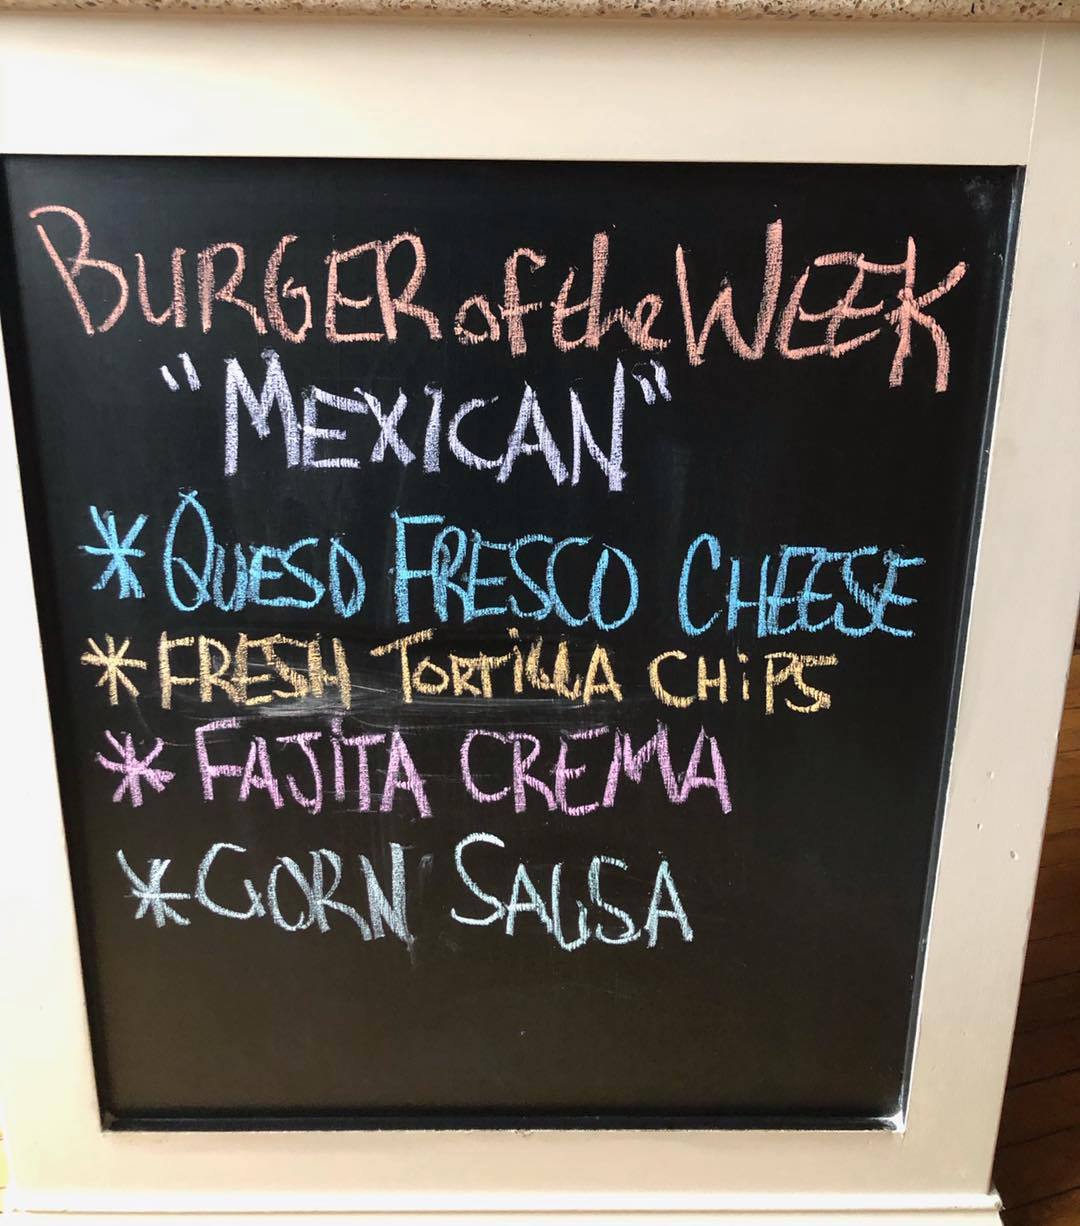 BURGER of the WEEK
"MEXICAN"
* QUESO FRESCO CHEESE
* FRESH TORTILLA CHiPS
* FAJITA CREMA
* CORN SALSA